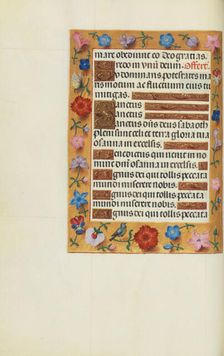 mare obediunt ei Deo gratias.
Credo in vnū deum. Offert.
Tu dominaris potestatis ma
ris motum aūt fluctuum eius tu
mitigas.
Sanctus
Sanctus
Sanctus dn̄s deus sabaoth
pleni sunt celi et terra gloria tua
osanna in excelsis.
Benedictus qui uenit in no
mine dn̄i osanna in excelsis.
Agnus dei qui tollis peccata
mundi miserere nobis.
Agnus dei qui tollis peccata
mundi miserere nobis.
Agnus dei qui tollis peccata